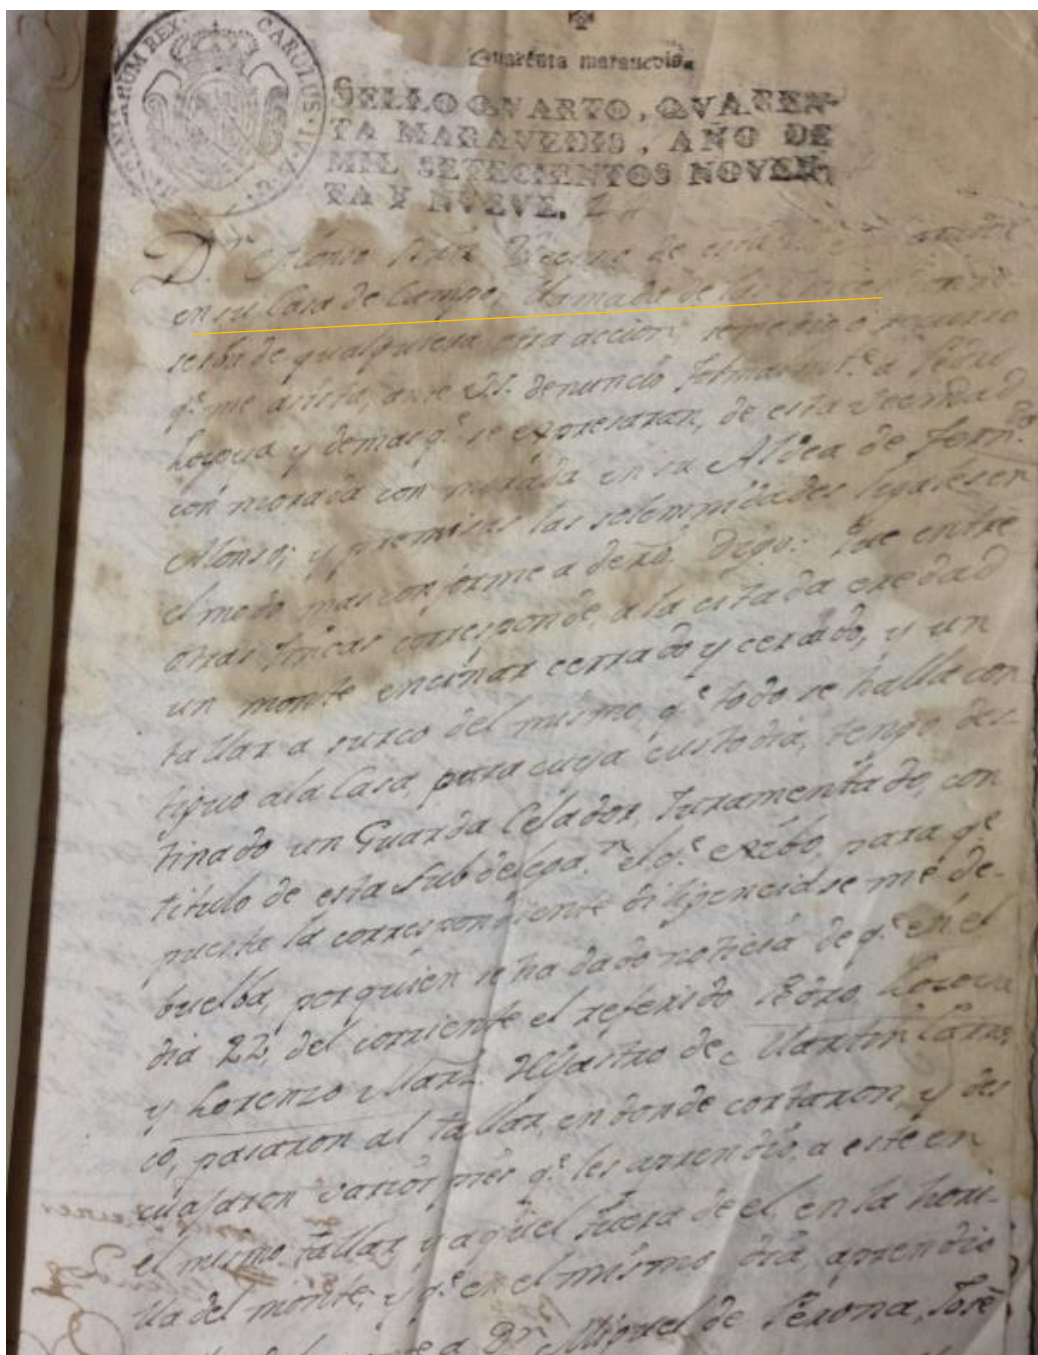 HISPANIARUM REX. CAROLUS. IV. D. G.
Quarenta maravedis.
SELLO QVARTO, QVAREN-
TA MARAVEDIS, AÑO DE
MIL SETECIENTOS NOVEN-
TA Y NUEVE.
Dn. Alonso Vecino de esta
en su Casa de Campo, llamada de las
serba de qualquiera otra accion, remedio o recurso
qe. me asista, ante Vs. denuncio formalmte. a Pedro
Lozoya y demas qe. se expresaran, de esta Vecindad
con morada con morada en su Aldea de Ferndo.
Alonso; y premisas las solemnidades legales en
el modo mas conforme a derõ. Digo: Que entre
otras fincas corresponde, a la citada eredad
un monte encinar cerrado y cerdado, y un
tallar a surco del mismo, qe. todo se halla con
tiguo ala Casa, para cuya custodia, tengo des-
tinado un Guarda Celador, Juramentado, con
titulo de esta Subdelegan. el qe. exibo, para qe.
puesta la correspondiente diligencia se me de-
buelba, por quien se ha dado noticia de qe. en el
dia 22, del corriente el referido Pedro Lozoya
y Lorenzo Marz. Hijastro de Martin Carras
co, pasaron al tallar, en donde cortaron, y des
cuajaron varios pies qe. les aprendió, a este en
el mismo tallar y aquel fuera de el, en la hori-
lla del monte; y qe. en el mismo dia, aprendio
a Dn. Miguel de Perona, José